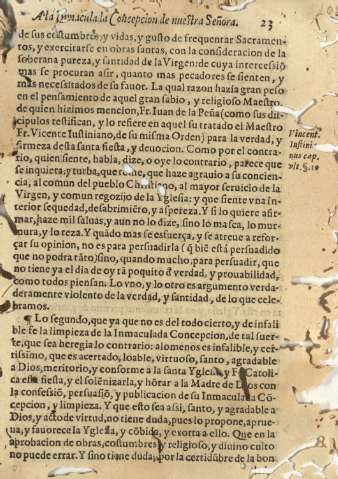 A la Inmaculada Concepcion de nuestra Señora. 23
de sus costumbres, y vidas, y gusto de frequentar Sacramen-
tos, y exercitarse en obras santas, con la consideracion de la
soberana pureza, y santidad de la Virgen: de cuya intercessiõ
mas se procuran asir, quanto mas pecadores se sienten, y
mas necessitados de su fauor. La qual razon hazia gran peso
en el pensamiento de aquel gran sabio, y religioso Maestro,
de quien hizimos mencion, Fr. Iuan de la Peña (como sus dis
cipulos testifican, y lo refiere en aquel su tratado el Maestro
Fr. Vicente Iustiniano, de su misma Orden) para la verdad, y
firmeza desta santa fiesta, y deuocion. Como por el contra-
rio, quien siente, habla, dize, o oye lo contrario, parece que
se inquieta, y turba, que haze agrauio a su concien-
cia, al comun del pueblo al mayor seruicio de la
Virgen, y comun regozijo de la Yglesia: y que siente vna in-
terior sequedad, desabrimiẽto, y aspereza. Y si lo quiere afir-
mar, haze mil saluas, y aun no lo dize, sino lo masca, lo mur-
mura, y lo reza. Y quãdo mas se esfuerça, y se atreue a refor-
çar su opinion, no es para persuadirla (q̃ biẽ està persuadido
que no podra tãto) sino, quando mucho, para persuadir, que
no tiene ya el dia de oy tã poquito d̃ verdad, y prouabilidad,
como todos piensan. Lo vno, y lo otro es argumento verda-
deramente violento de la verdad, y santidad, de lo que cele-
bramos.
Vincent.
Iustini-
nus cap.
vlt. §. 10
¶ Lo segundo, que ya que no es del todo cierto, y de infali
ble fe la limpieza de la Inmaculada Concepcion, de tal suer-
te, que sea heregia lo contrario: alomenos es infalible, y cer-
tissimo, que es acertado, loable, virtuoso, santo, agradable
a Dios, meritorio, y conforme a la santa Yglesia, y Fè Catoli-
ca esta fiesta, y el solẽnizarla, y hõrar a la Madre de Dios con
la confessiõ, persuasiõ, y publicacion de su Inmaculada Cõ-
cepcion, y limpieza. Y que esto sea assi, santo, y agradable a
Dios, y acto de virtud, no tiene duda, pues lo propone, aprue-
ua, y fauorece la Yglesia, y cõbida, y exorta a ello. Que en la
aprobacion de obras, costumbres y religioso, y diuino culto
no puede errar. Y sino tiene duda, por la certidũbre de la bon